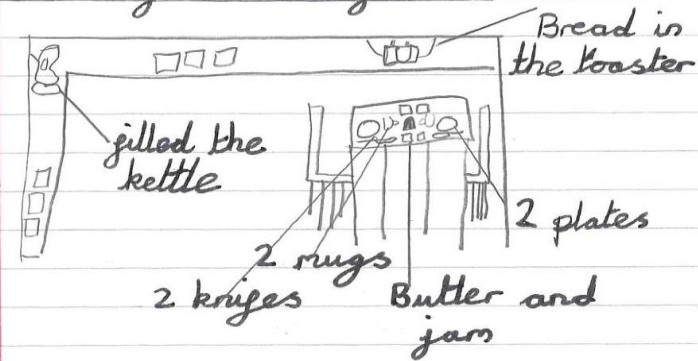 Bread in
the toaster
filled the
kettle
2 plates
2 mugs
2 knifes
Butter and
jam